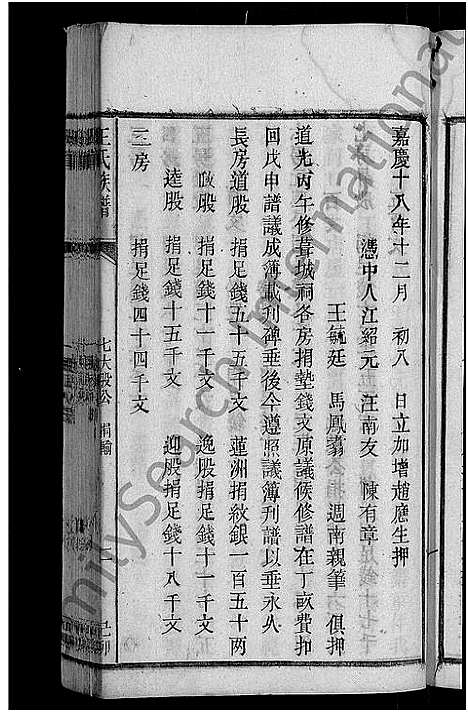 嘉慶十八年十二月　初八　日立加增趙應生押
憑中人江紹元　汪南友　陳有章
王毓廷　馬鳳翥　週南親筆　俱押
道光丙午修葺城祠各房捐墊錢文原議候修譜在丁畝費扣
回戊申譜議成簿載刊碑垂後今遵照議簿刊譜以垂永久
長房道股　捐足錢五十五千文　蓮洲捐紋銀一百五十兩
政股　捐足錢十一千文　逸股捐足錢十一千文
逵股　捐足錢十五千文　迎股捐足錢十八千文
三房　捐足錢四十四千文
王氏族譜
七大段公　捐輸
己卯